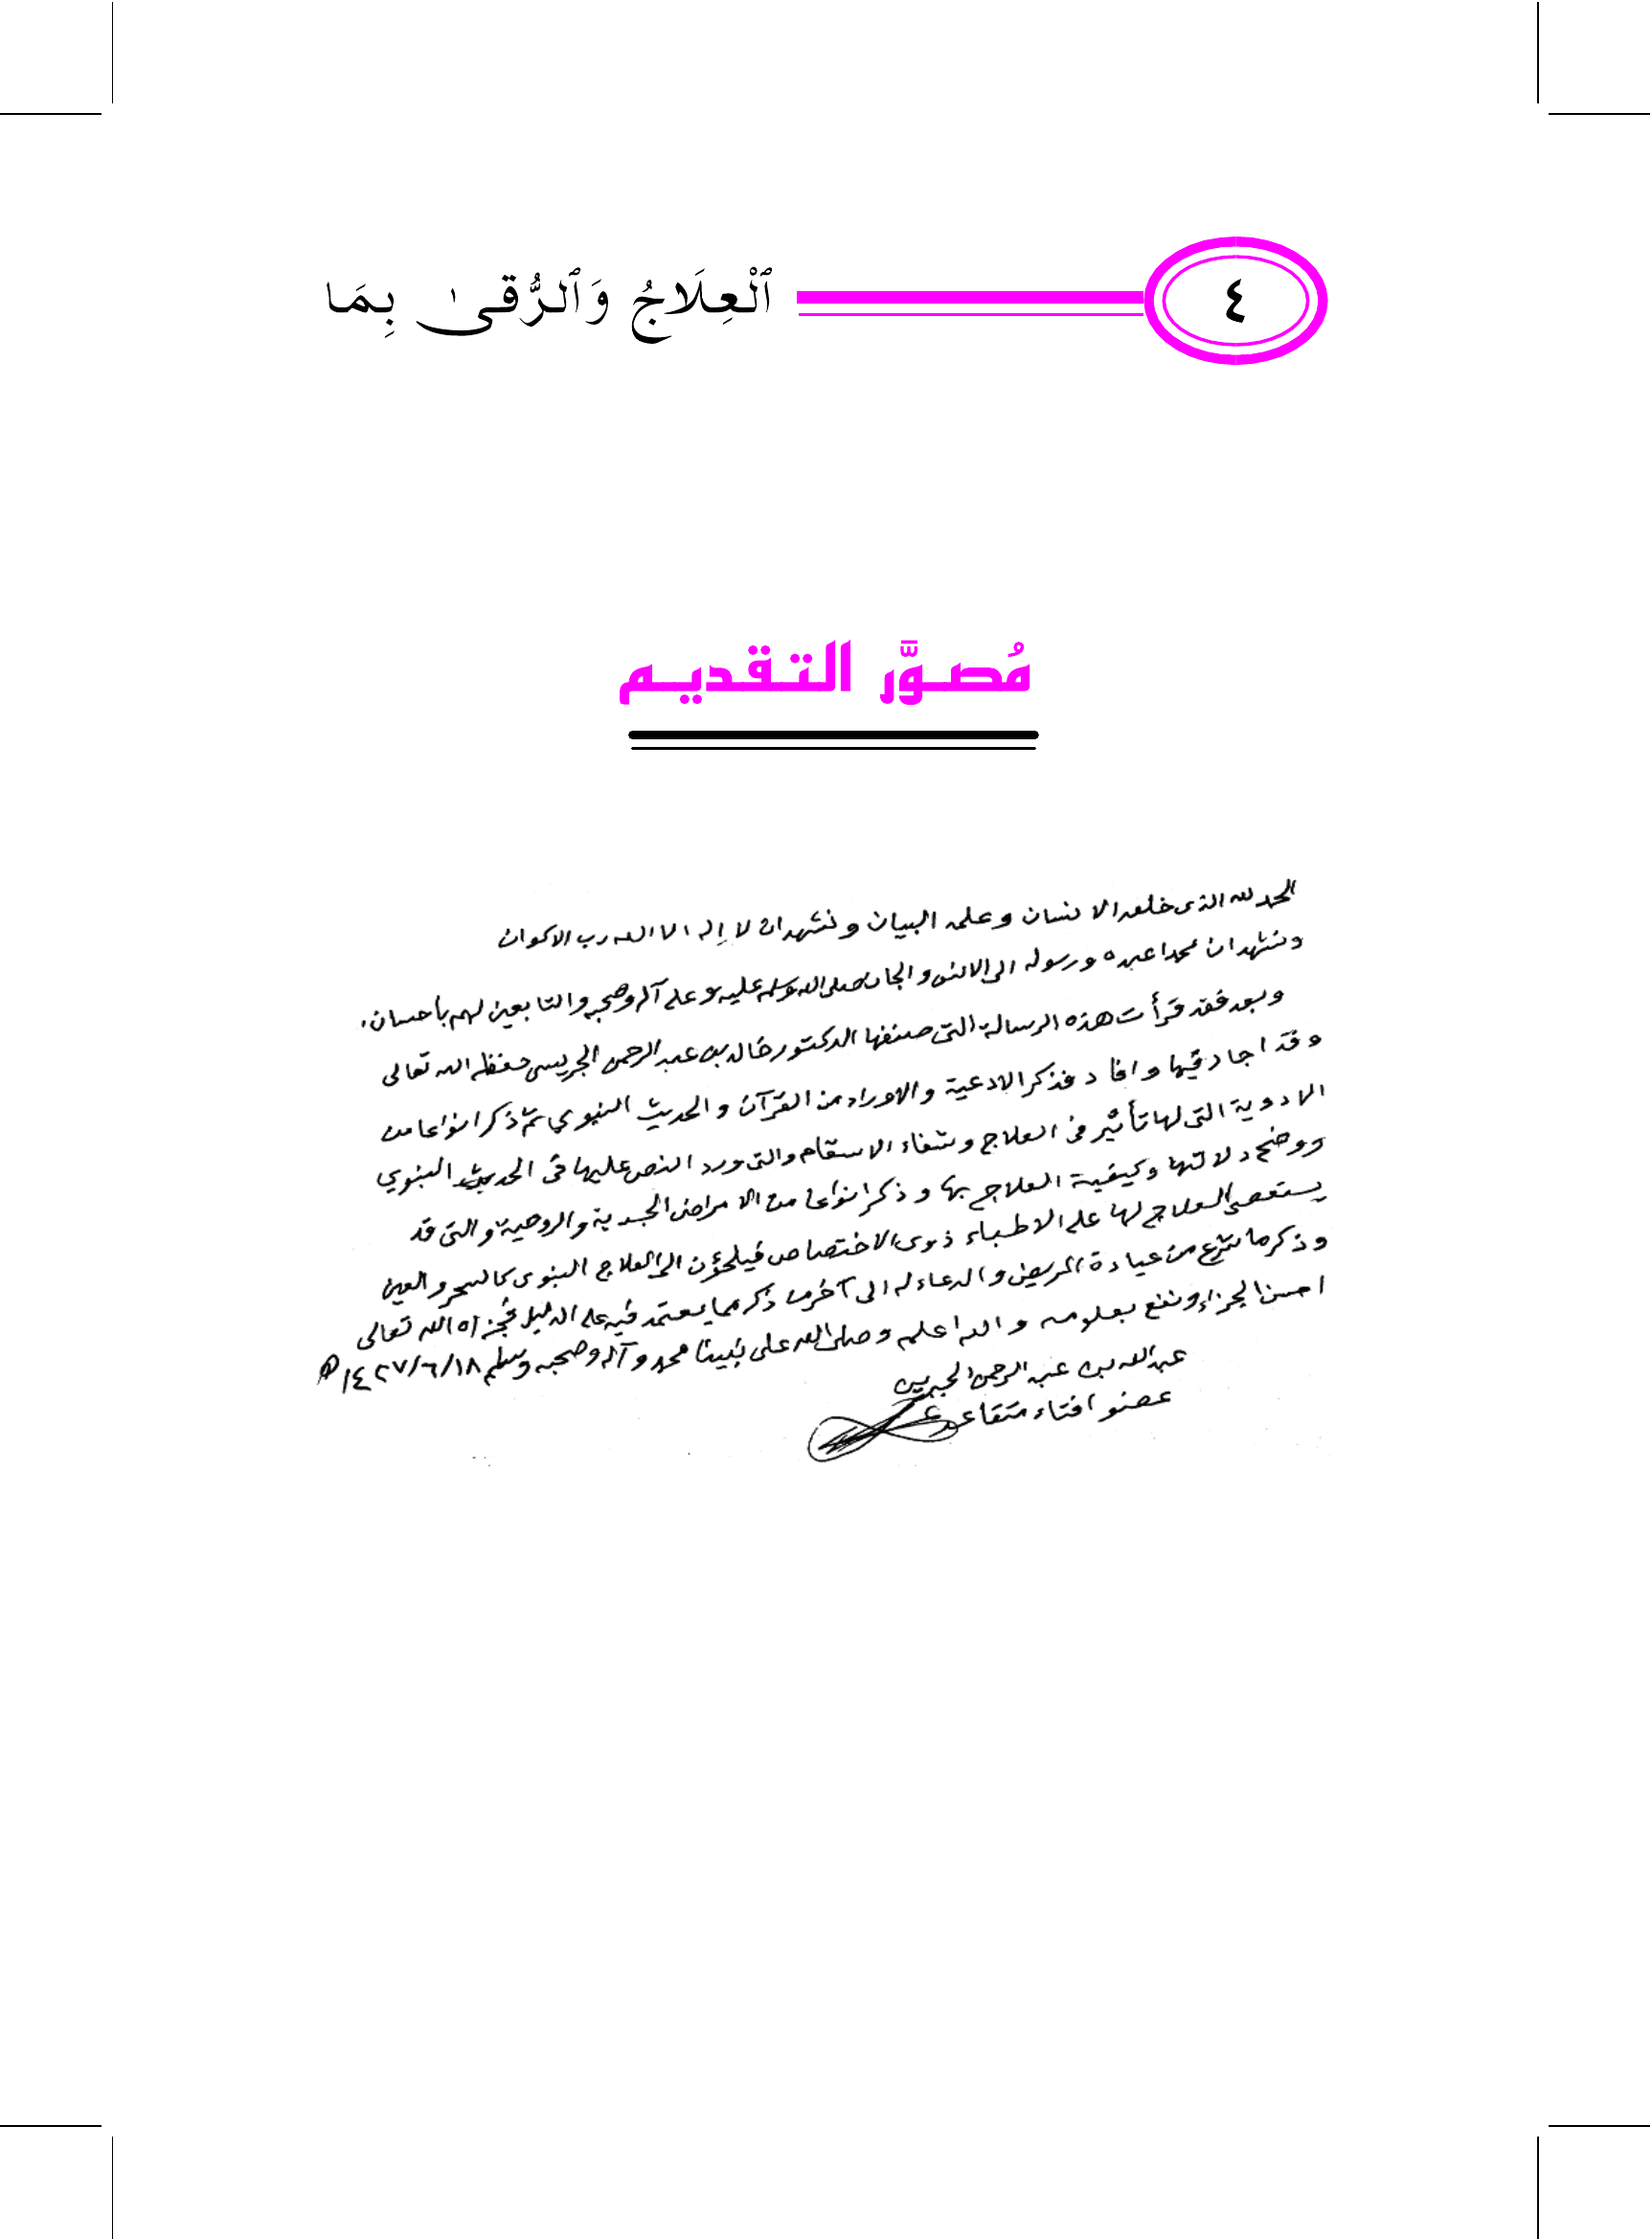 ٤
ٱلْعِلَاجُ وَٱلرُّقىٰ بِمَا
مُصوَّر التقديم
الحمد لله الذى خلق الانسان وعلمه البيان ونشهد ان لا إله الا الله رب الاكوان
ونشهد ان محمدا عبده ورسوله الى الانس والجان صلى الله وسلم عليه وعلى آله وصحبه والتابعين لهم باحسان.
وبعد فقد قرأت هذه الرسالة التى صنفها الدكتور خالد بن عبد الرحمن الجريسى حفظه الله تعالى
وقد اجاد فيها وافاد فذكر الادعية والاوراد من القرآن والحديث النبوي ثم ذكر انواعا من
الادوية التى لها تأثير فى العلاج وشفاء الاسقام والتى ورد النص عليها فى الحديث النبوي
ووضح دلالتها وكيفية العلاج بها وذكر انواعا من الامراض الجسدية والروحية والتى قد
يستعصى العلاج لها على الاطباء ذوى الاختصاص فيلجؤن الى العلاج النبوى كالسحر والعين
وذكر ما شرع من عيادة المريض والدعاء له الى آخر ما ذكر مما يعتمد فيه على الدليل فجزاه الله تعالى
احسن الجزاء ونفع بعلومه والله اعلم وصلى الله على نبينا محمد وآله وصحبه وسلم ١٤٢٧/٦/١٨ ه
عبدالله بن عبد الرحمن الجبرين
عضو افتاء متقاعد